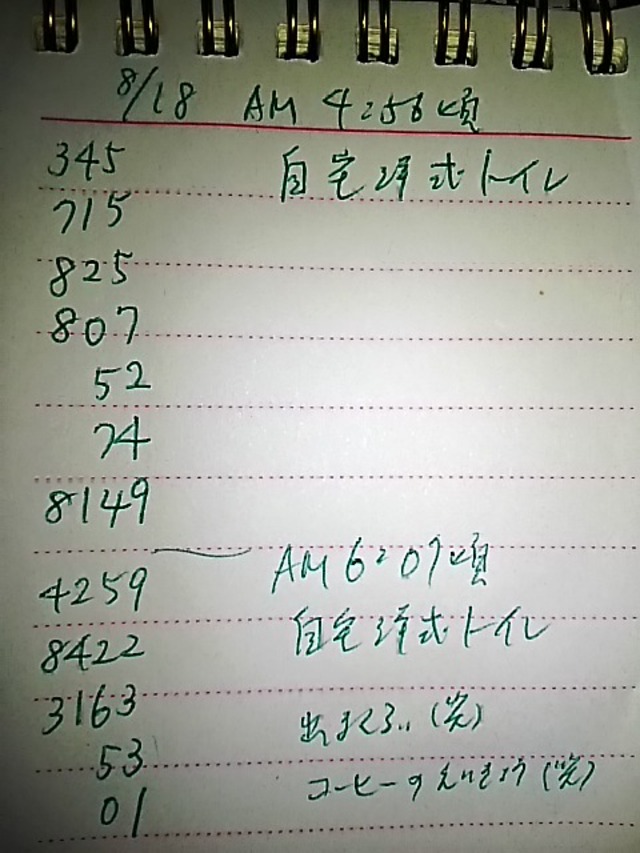 8/18 AM 4:56頃
345 自宅洋式トイレ
715
825
807
52
74
8149
AM 6:07頃
4259
自宅洋式トイレ
8422
3163 出まくる、、(笑)
53
コーヒーのえいきょう(笑)
01